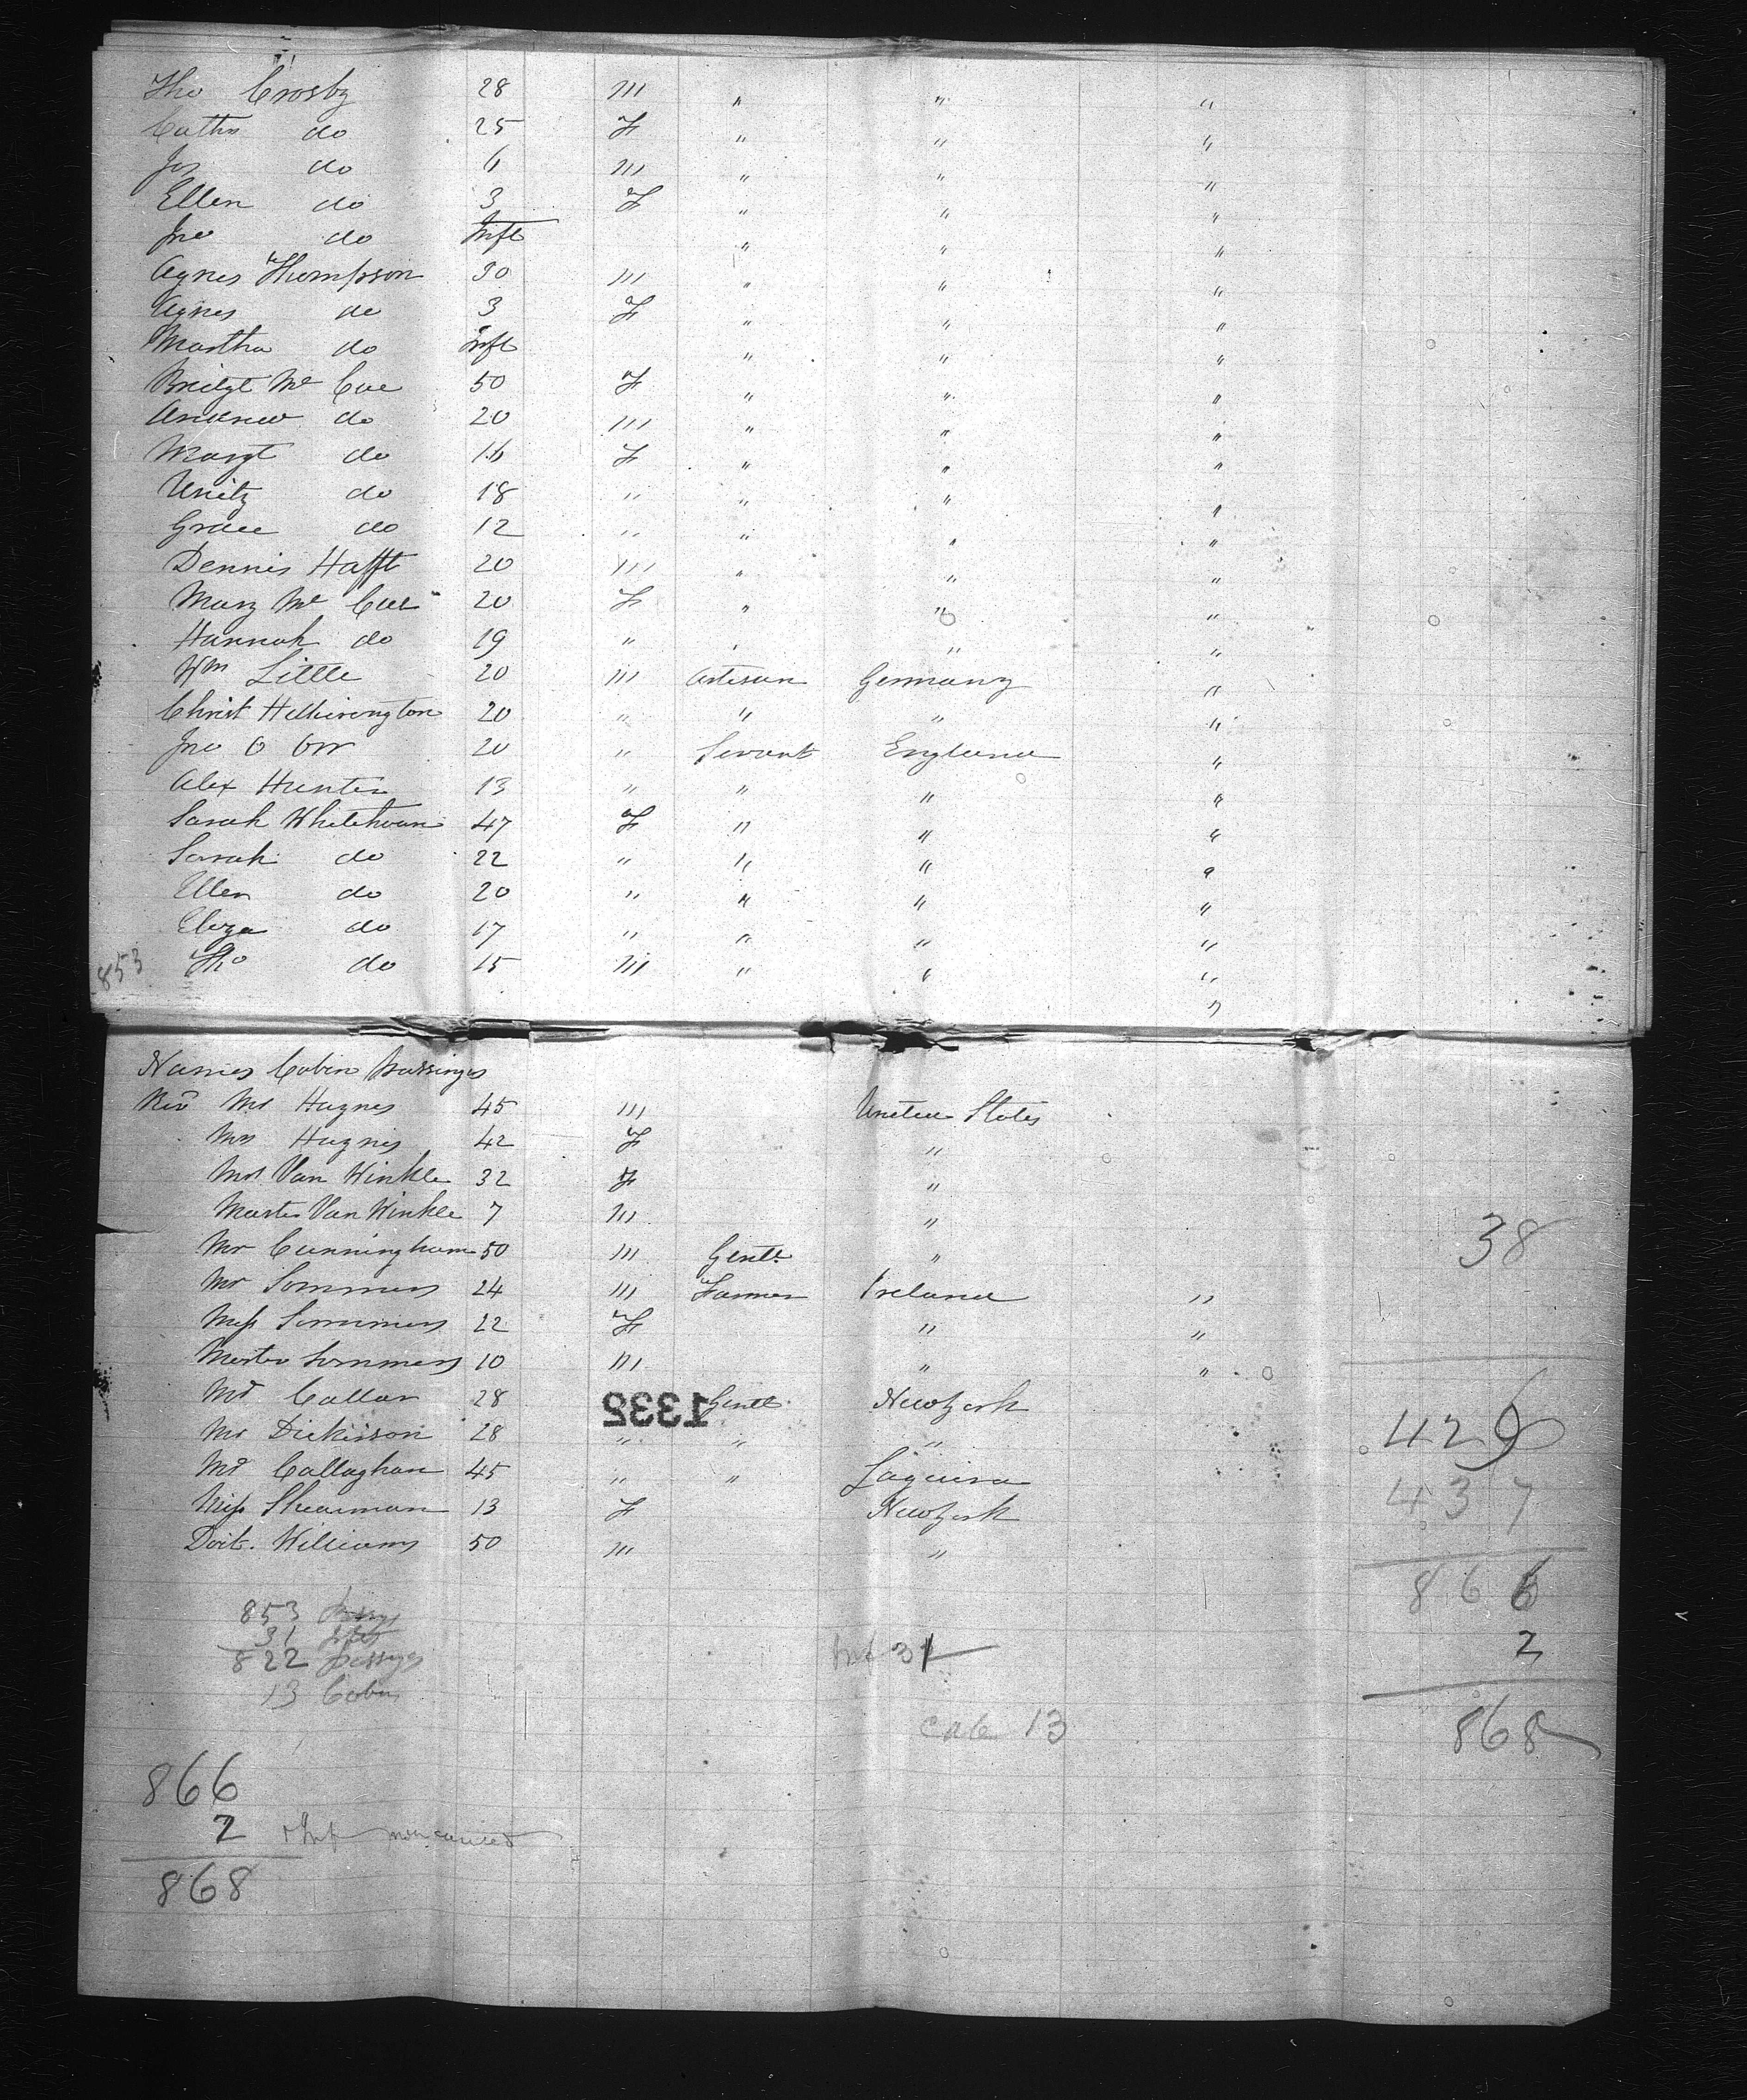 Tho Crosby 28 M " " "
Cathe do 25 F " " "
Jas do 6 M " " "
Ellen do 3 F " " "
Jno do Inft " " "
Agnes Thompson 30 M " " "
Agnes do 3 F " " "
Martha do Inft " " "
Bridgt Mc Cue 50 F " " "
Andrew do 20 M " " "
Margt do 16 F " " "
Unity do 18 " " " "
Grace do 12 " " " "
Dennis Hafft 20 M " " "
Mary Mc Cue 20 F " " "
Hannah do 19 " " " "
Wm Little 20 M Artisan Germany "
Christ Hetherington 20 " " " "
Jno O Orr 20 " Servant England "
Alex Hunter 13 " " " "
Sarah 47 F " " "
Sarah do 22 " " " "
Ellen do 20 " " " "
Eliza do 17 " " " "
853 Tho do 15 M " " "
"
Names Cabin Passingrs
Revd Mr Haynes 45 M United States
Mrs Haynes 42 F "
Mrs Van Winkle 32 F "
Master Van Winkle 7 M "
Mr Cunningham 50 M Gentl. "
38
Mr Sommers 24 M Farmer Ireland "
Miss Sommers 22 F " "
Master Sommers 10 M " "
Mr Callan 28 1332 Gentl. New York
429
Mr Dickisson 28 " " "
Mr Callaghan 45 " " Laguira
437
Miss Shearman 13 F New York
Doct. Williams 50 M "
866
853 Passgs
31 Infts
822 Passgs
Inf 31
2
13 Cabin
cab 13
868
866
2 Inf
868